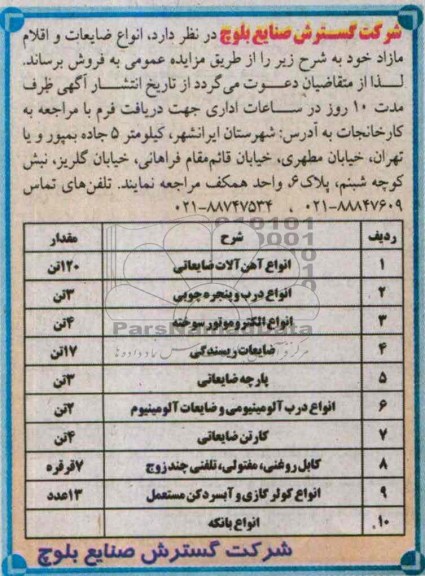 شرکت گسترش صنایع بلوچ در نظر دارد، انواع ضایعات و اقلام
مازاد خود به شرح زیر را از طریق مزایده عمومی به فروش برساند.
لذا از متقاضیان دعوت می‌گردد از تاریخ انتشار آگهی ظرف
مدت ۱۰ روز در ساعات اداری جهت دریافت فرم با مراجعه به
کارخانجات به آدرس: شهرستان ایرانشهر، کیلومتر ۵ جاده بمپور و یا
تهران، خیابان مطهری، خیابان قائم‌مقام فراهانی، خیابان گلریز، نبش
کوچه شبنم، پلاک۶، واحد همکف مراجعه نمایند. تلفن‌های تماس
۰۲۱-۸۸۸۴۷۶۰۹ ، ۰۲۱-۸۸۷۴۷۵۳۴
ردیف شرح مقدار
۱ انواع آهن‌آلات ضایعاتی ۱۲۰تن
۲ انواع درب و پنجره چوبی ۳تن
۳ انواع الکتروموتور سوخته ۴تن
ParsNamadData
۴ ضایعات ریسندگی ۱۷تن
۵ پارچه ضایعاتی ۳تن
۶ انواع درب آلومینیومی و ضایعات آلومینیوم ۲تن
۷ کارتن ضایعاتی ۴تن
۸ کابل روغنی، مفتولی، تلفنی چند زوج ۷قرقره
۹ انواع کولر گازی و آبسردکن مستعمل ۱۳عدد
۱۰ انواع بانکه
شرکت گسترش صنایع بلوچ